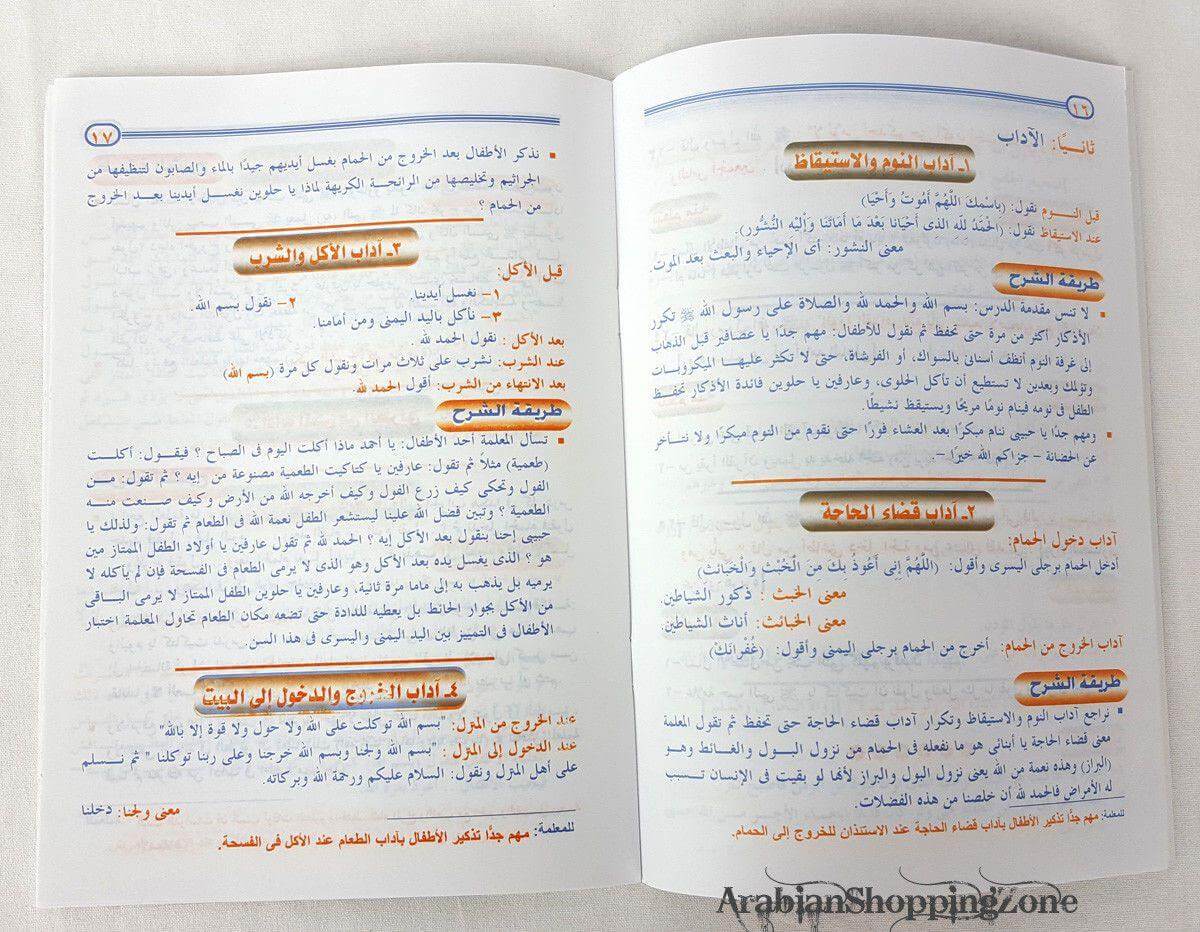 ١٦
ثانيًا: الآداب
١ـ آداب النوم والاستيقاظ
قبل النــوم نقول: (باسْمِكَ اللَّهُمَّ أَمُوتُ وَأَحْيَا)
عند الاستيقاظ نقول: (الْحَمْدُ لِلَّهِ الذى أَحْيَانا بَعْدَ مَا أَمَاتَنَا وَإِلَيْهِ النُّشُور).
معنى النشور: أى الإحياء والبعث بعد الموت.
طريقة الشرح
▪ لا تنس مقدمة الدرس: بسم الله والحمد لله والصلاة على رسول الله ﷺ تكرر
الأذكار أكثر من مرة حتى تحفظ ثم نقول للأطفال: مهم جدًا يا عصافير قبل الذهاب
إلى غرفة النوم أنظف أسنانى بالسواك، أو الفرشاة، حتى لا تكثر عليهـا الميكروبـات
وتؤلمك وبعدين لا تستطيع أن تأكل الحلوى، وعارفين يا حلوين فائدة الأذكار تحفـظ
الطفل فى نومه فينام نومًا مريحًا ويستيقظ نشيطًا.
▪ ومهم جدًا يا حبيبى ننام مبكرًا بعد العشاء فورًا حتى نقوم من النوم مبكرًا ولا نتـأخر
عن الحضانة – جزاكم الله خيرًا –.
٢ـ آداب قضاء الحاجة
آداب دخول الحمام:
أدخل الحمام برجلى اليسرى وأقول: (اللَّهُمَّ إنى أَعُوذُ بِكَ مِنَ الْخُبُثِ وَالْخَبَائث)
معنى الخبث : ذكور الشياطين.
معنى الخبائث: أناث الشياطين.
آداب الخروج من الحمام: أخرج من الحمام برجلي اليمنى وأقول: (غُفْرَانَكَ)
طريقة الشرح
▪ نراجع آداب النوم والاستيقاظ وتكرار آداب قضاء الحاجة حتى تحفظ ثم تقول المعلمة
معنى قضاء الحاجة يا أبنائى هو ما نفعله فى الحمام من نزول البـول والغـائط وهـو
(البراز) وهذه نعمة من الله يعنى نزول البول والبراز لأنها لو بقيت فى الإنسان تـسبب
له الأمراض فالحمد لله أن خلصنا من هذه الفضلات.
للمعلمة: مهم جدًا تذكير الأطفال بآداب قضاء الحاجة عند الاستئذان للخروج إلى الحمام.
١٧
▪ نذكر الأطفال بعد الخروج من الحمام بغسل أيديهم جيدًا بالماء والصابون لتنظيفها من
الجراثيم وتخليصها من الرائحـة الكريهة لماذا يا حلوين نغـسل أيدينا بعـد الخروج
من الحمام ؟
٣ـ آداب الأكل والشرب
قبل الأكل:
١– نغسل أيدينا. ٢– نقول بسم الله.
٣– نأكل باليد اليمنى ومن أمامنا.
بعد الأكل : نقول الحمد لله .
عند الشرب: نشرب على ثلاث مرات ونقول كل مرة (بسم الله)
بعد الانتهاء من الشرب: أقول الحمد لله.
طريقة الشرح
▪ تسأل المعلمة أحد الأطفال: يا أحمد ماذا أكلت اليوم فى الصباح ؟ فيقول: أكلـت
(طعمية) مثلاً ثم تقول: عارفين يا كتاكيت الطعمية مصنوعة من إيه ؟ ثم تقول: مـن
الفول وتحكى كيف زرع الفول وكيف أخرجه الله من الأرض وكيف صـنعت منـه
الطعمية ؟ وتبين فضل الله علينا ليستشعر الطفل نعمة الله فى الطعام ثم تقول: ولذلك يا
حبيبى إحنا بنقول بعد الأكل إيه ؟ الحمد لله ثم تقول عارفين يا أولاد الطفل الممتاز مين
هو ؟ الذى يغسل يده بعد الأكل وهو الذى لا يرمى الطعام فى الفسحة فإن لم يأكله لا
يرميه بل يذهب به إلى ماما مرة ثانية، وعارفين يا حلوين الطفل الممتاز لا يرمى البـاقى
من الأكل بجوار الحائط بل يعطيه للدادة حتى تضعه مكان الطعام تحاول المعلمة اختبار
الأطفال فى التمييز بين اليد اليمنى واليسرى فى هذا السن.
٤ـ آداب الخروج والدخول إلى البيت
عند الخروج من المنزل: "بسم الله توكلت على الله ولا حول ولا قوة إلا بالله"
عند الدخول إلى المنزل : "بسم الله ولجنا وبسم الله خرجنا وعلى ربنا توكلنا " ثم نـسلم
على أهل المنزل ونقول: السلام عليكم ورحمة الله وبركاته.
معنى ولجنا: دخلنا
للمعلمة: مهم جدًا تذكير الأطفال بآداب الطعام عند الأكل فى الفسحة.
ArabianShoppingZone